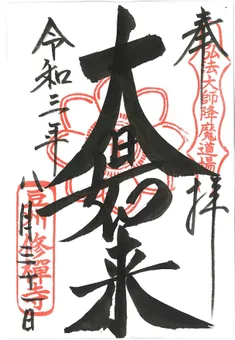 奉拝
弘法大師降魔道場
大日如来
令和三年八月三十一日
豆州修禪寺